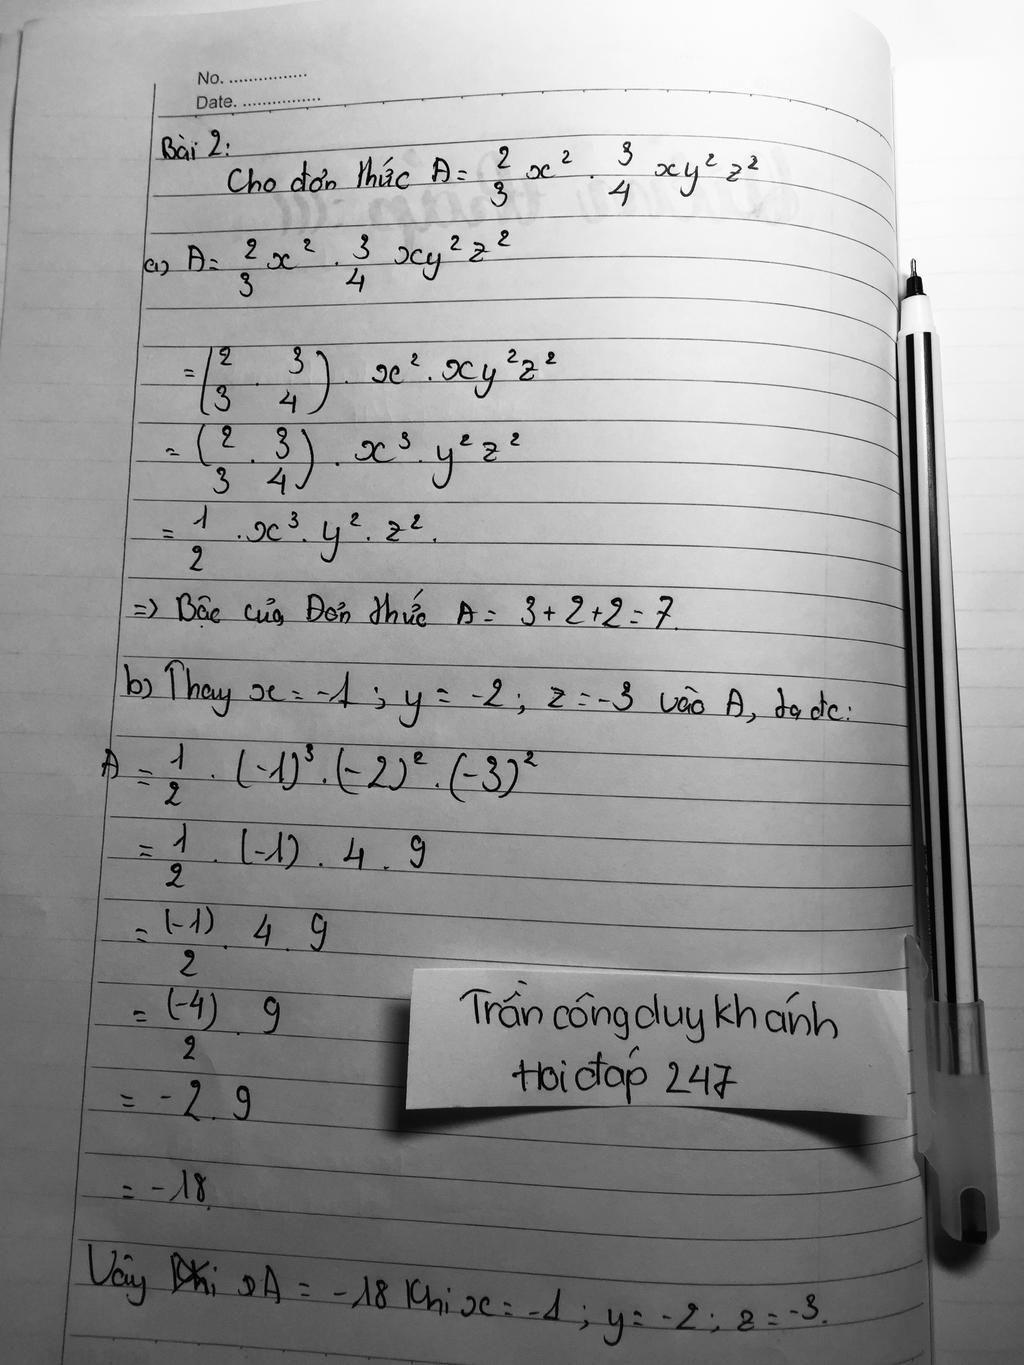 No. ................
Date. ................
Bài 2:
Cho đơn thức A = 2/3 x² . 3/4 xy² z²
a) A = 2/3 x² . 3/4 xy² z²
= (2/3 . 3/4) . x² . xy² z²
= (2/3 . 3/4) . x³ . y² z²
= 1/2 . x³ . y² . z² .
=> Bậc của Đơn thức A = 3 + 2 + 2 = 7.
b) Thay x = -1 ; y = -2 ; z = -3 vào A, ta đc:
A = 1/2 . (-1)³ . (-2)² . (-3)²
= 1/2 . (-1) . 4 . 9
= (-1)/2 . 4 . 9
= (-4)/2 . 9
= -2 . 9
= -18.
Trần công duy khánh
Hoi đáp 247
Vậy A = -18 Khi x = -1 ; y = -2 ; z = -3.